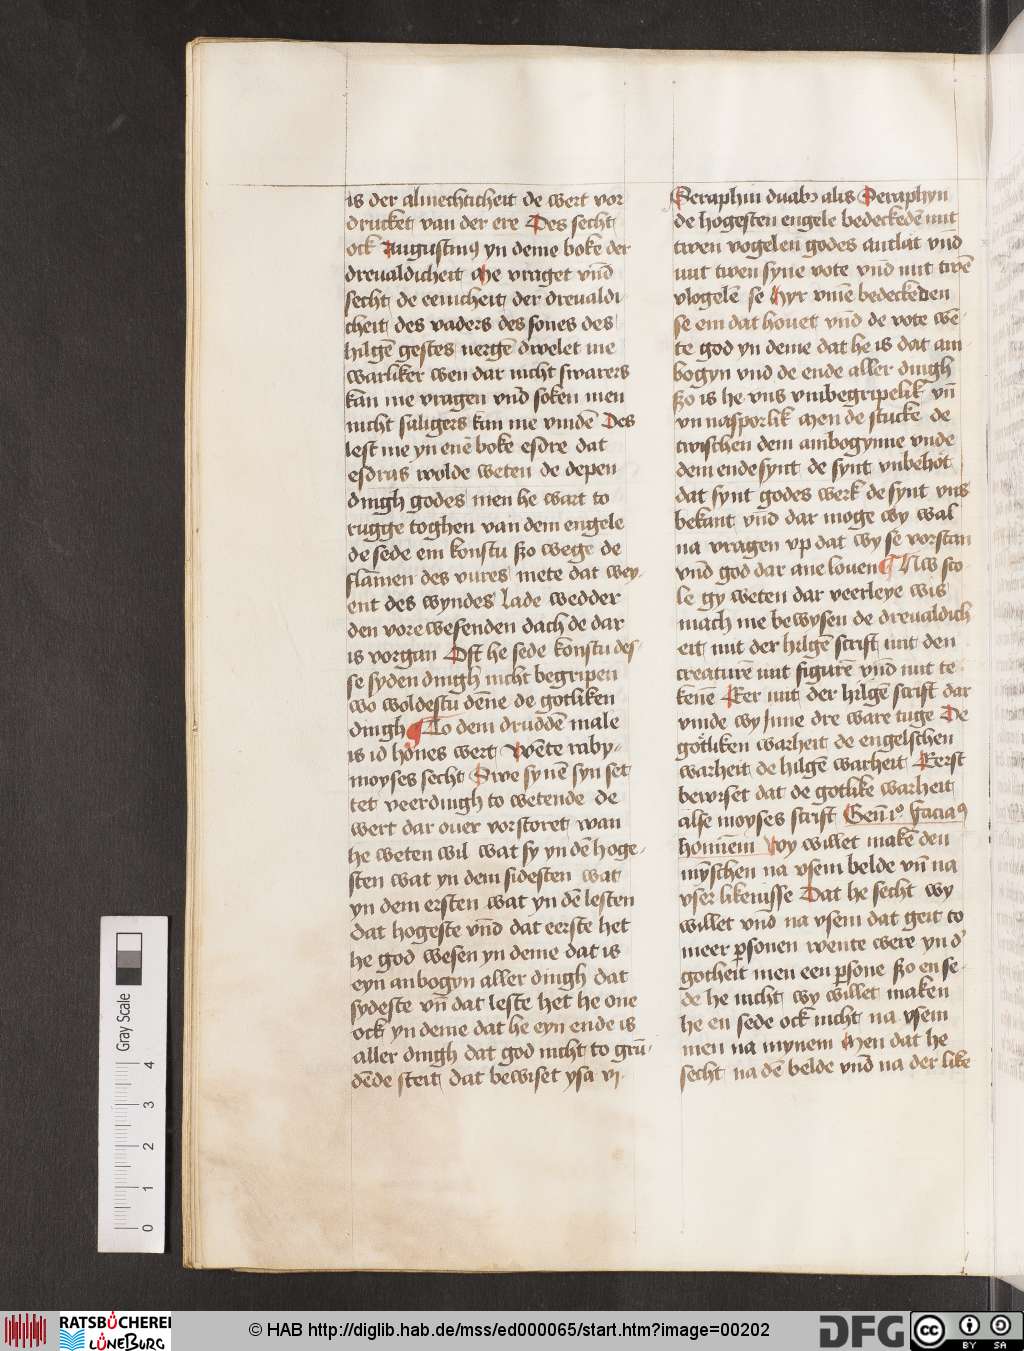 is der almechticheit de wert vor
drucket van der ere Des secht
ock Augustinꝰ yn deme boke der
dreualdicheit Me vraget vn̄d
secht de eenicheit der dreualdi
cheit des vaders des sones des
hilgē gestes nergē dwelet me
warliker wen dar nicht swarers
kan me vragen vn̄d soken men
nicht saligers kan me vinden Des
lest me yn enē boke esdre dat
esdras wolde weten de depen
dingh godes men he wart to
rugge toghen van dem engele
de sede em konstu ßo wege de
flāmen des vures mete dat wey
ent des wyndes lade wedder
den vore wesenden dach de dar
is vorgan Oft he sede konstu des
se syden dingh nicht begripen
wo woldestu dēne de gotliken
dingh To dem drudden̄ male
is id hones wert Wēte raby
moyses secht Swe synē syn set
tet veerdingh to wetende de
wert dar ouer vorstoret wan
he weten wil wat sy yn dē hoge
sten wat yn dem sidesten wat
yn dem ersten wat yn dē lesten
Dat hogeste vn̄d dat eerste het
he god wesen yn deme dat is
eyn anbogyn aller dingh dat
sydeste vn̄ dat leste het he one
ock yn deme dat he eyn ende is
aller dingh dat god nicht to grū
dēde steit dat bewiset ysa vi
Seraphin duabꝫ alis Seraphyn
de hogesten engele bedeckedē mit
twen vogelen godes antlat vn̄d
mit twen syne vote vn̄d mit twē
vlogelē se Hyr vmē bedeckeden
se em dat houet vn̄d de vote wē
te god yn deme dat he is dat am
bogyn vnd de ende aller dingh
ßo is he vns vmbegripelik vn̄
vn nasporlik Men de stucke de
twischen dem ambogynne vnde
dem ende synt de synt vnbehōt
dat synt godes werk de synt vns
bekant vn̄d dar moge wy wal
na vragen vp dat wy se vorstan
vn̄d god dar ane louen Nw sco
le gy weten dar veerleye wis
mach me bewysen de dreualdich
eit mit der hilgē scrift mit den
creaturē mit figurē vn̄d mit te
kenē Eer mit der hilgē scrift dar
vinde wy Inne dre ware tuge De
gotliken warheit de engelschen
warheit de hilgē warheit Eerst
bewiset dat de gotlike warheit
alse moyses scrift Gen̄ iͦ faciaꝰ
hominem Wy willet makē den
mynschen na vsem belde vn̄ na
vser likenisse Dat he secht wy
willet vn̄d na vsem dat geit to
meer ꝑsonen wente were yn dʼ
gotheit men een ꝑsone ßo en se
de he nicht wy willet maken
he en sede ock nicht na vsem
men na mynem Men dat he
secht na dē belde vn̄d na der like
Gray Scale
4
3
2
1
0
RATSBÜCHEREI
LÜNEBURG
© HAB http://diglib.hab.de/mss/ed000065/start.htm?image=00202
DFG
cc BY SA